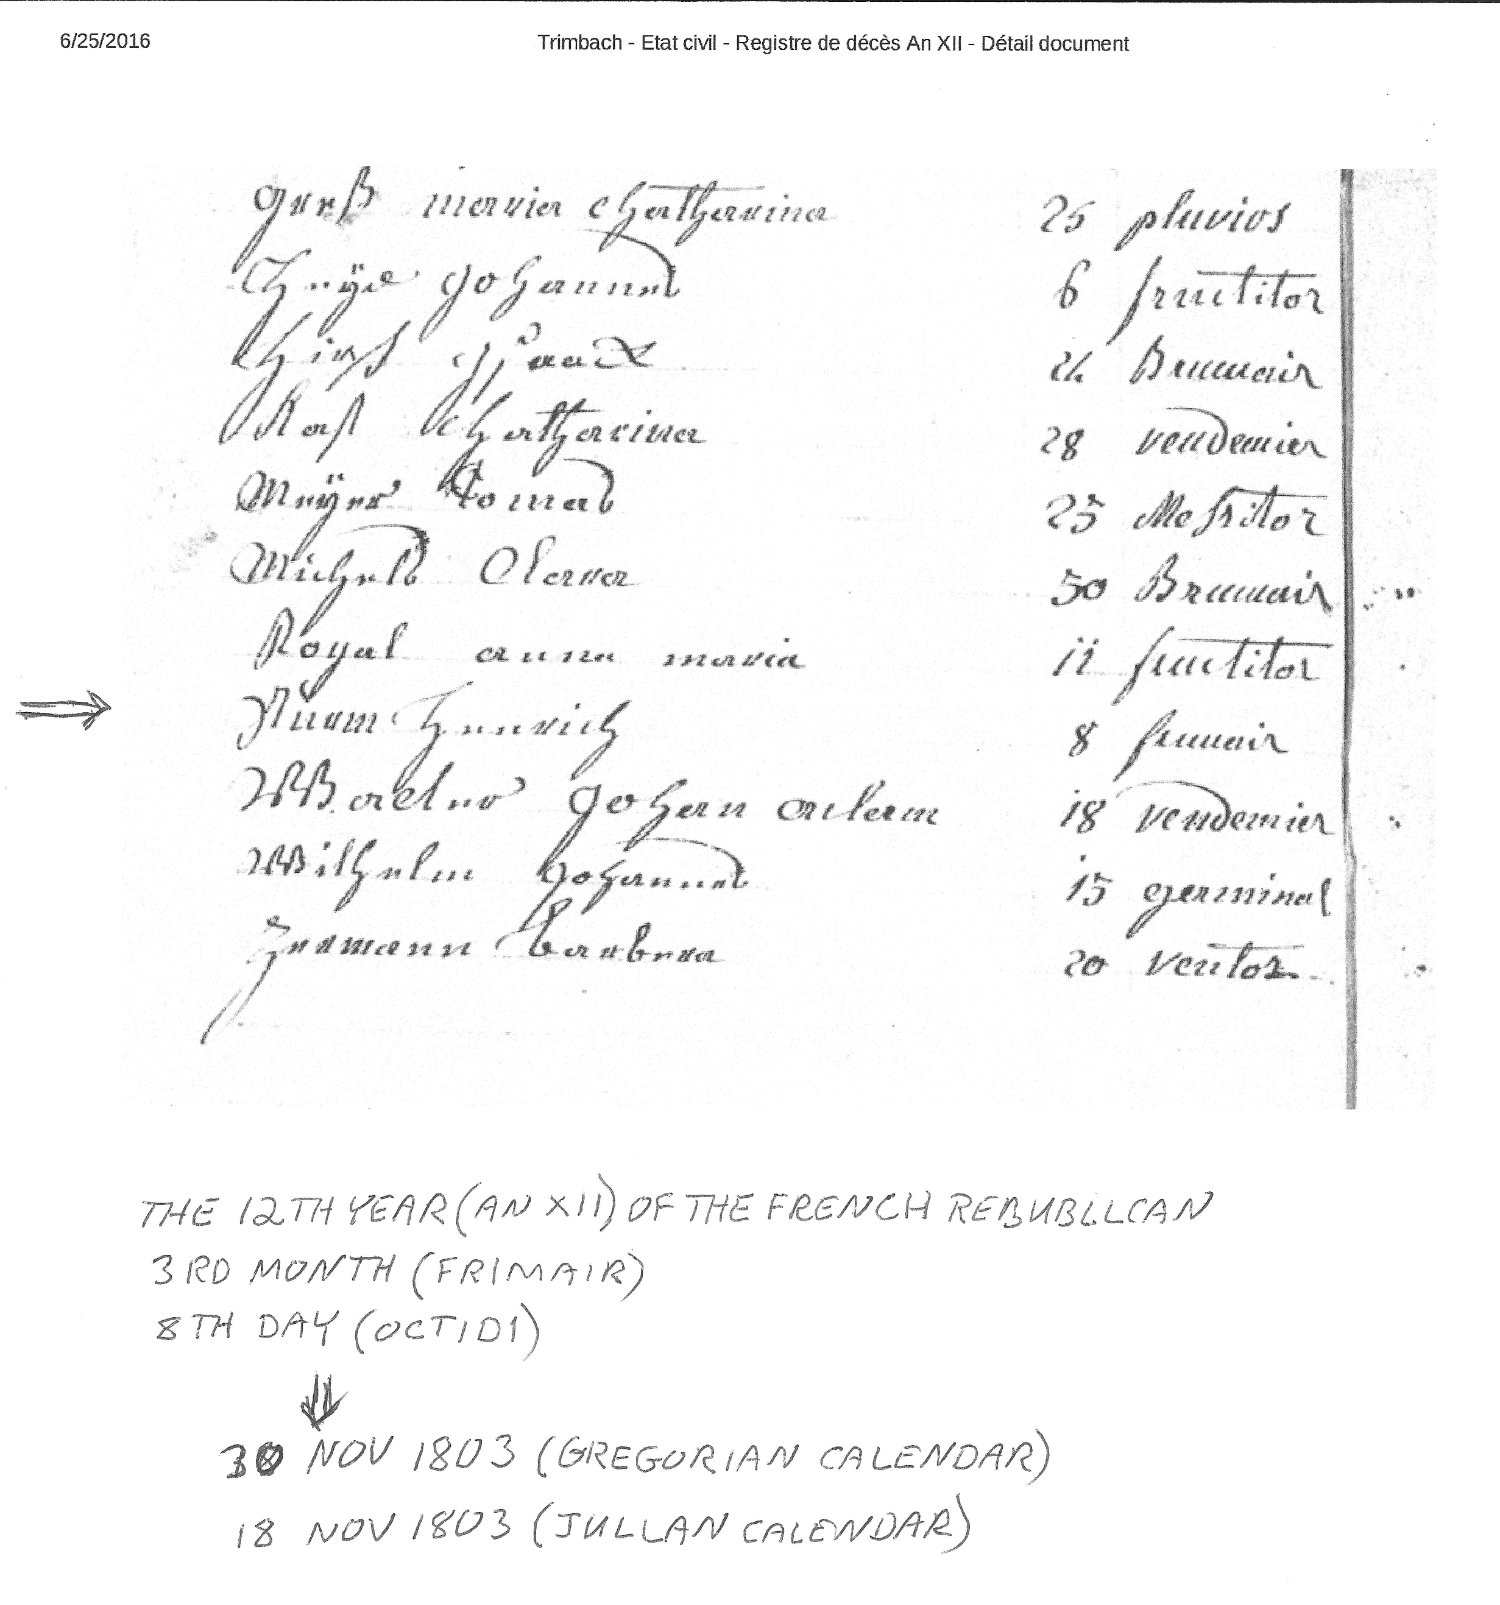 6/25/2016 Trimbach - Etat civil - Registre de décès An XII - Détail document
Greß maria Chatharina 25 pluvios
Johannes 6 fructitor
24 Brumair
Chatharina 28 vendemier
Meÿer Tomas 25 Messitor
Michels Clara 30 Brumair
Royal anna maria 11 fructitor
Sturm Henrich 8 frimair
Johan adam 18 vendemier
Wilhelm Johannes 15 germinal
Zermann Barbera 20 ventos
THE 12TH YEAR (AN XII) OF THE FRENCH REBUBLLCAN
3RD MONTH (FRIMAIR)
8TH DAY (OCTIDI)
30 NOV 1803 (GREGORIAN CALENDAR)
18 NOV 1803 (JULLAN CALENDAR)